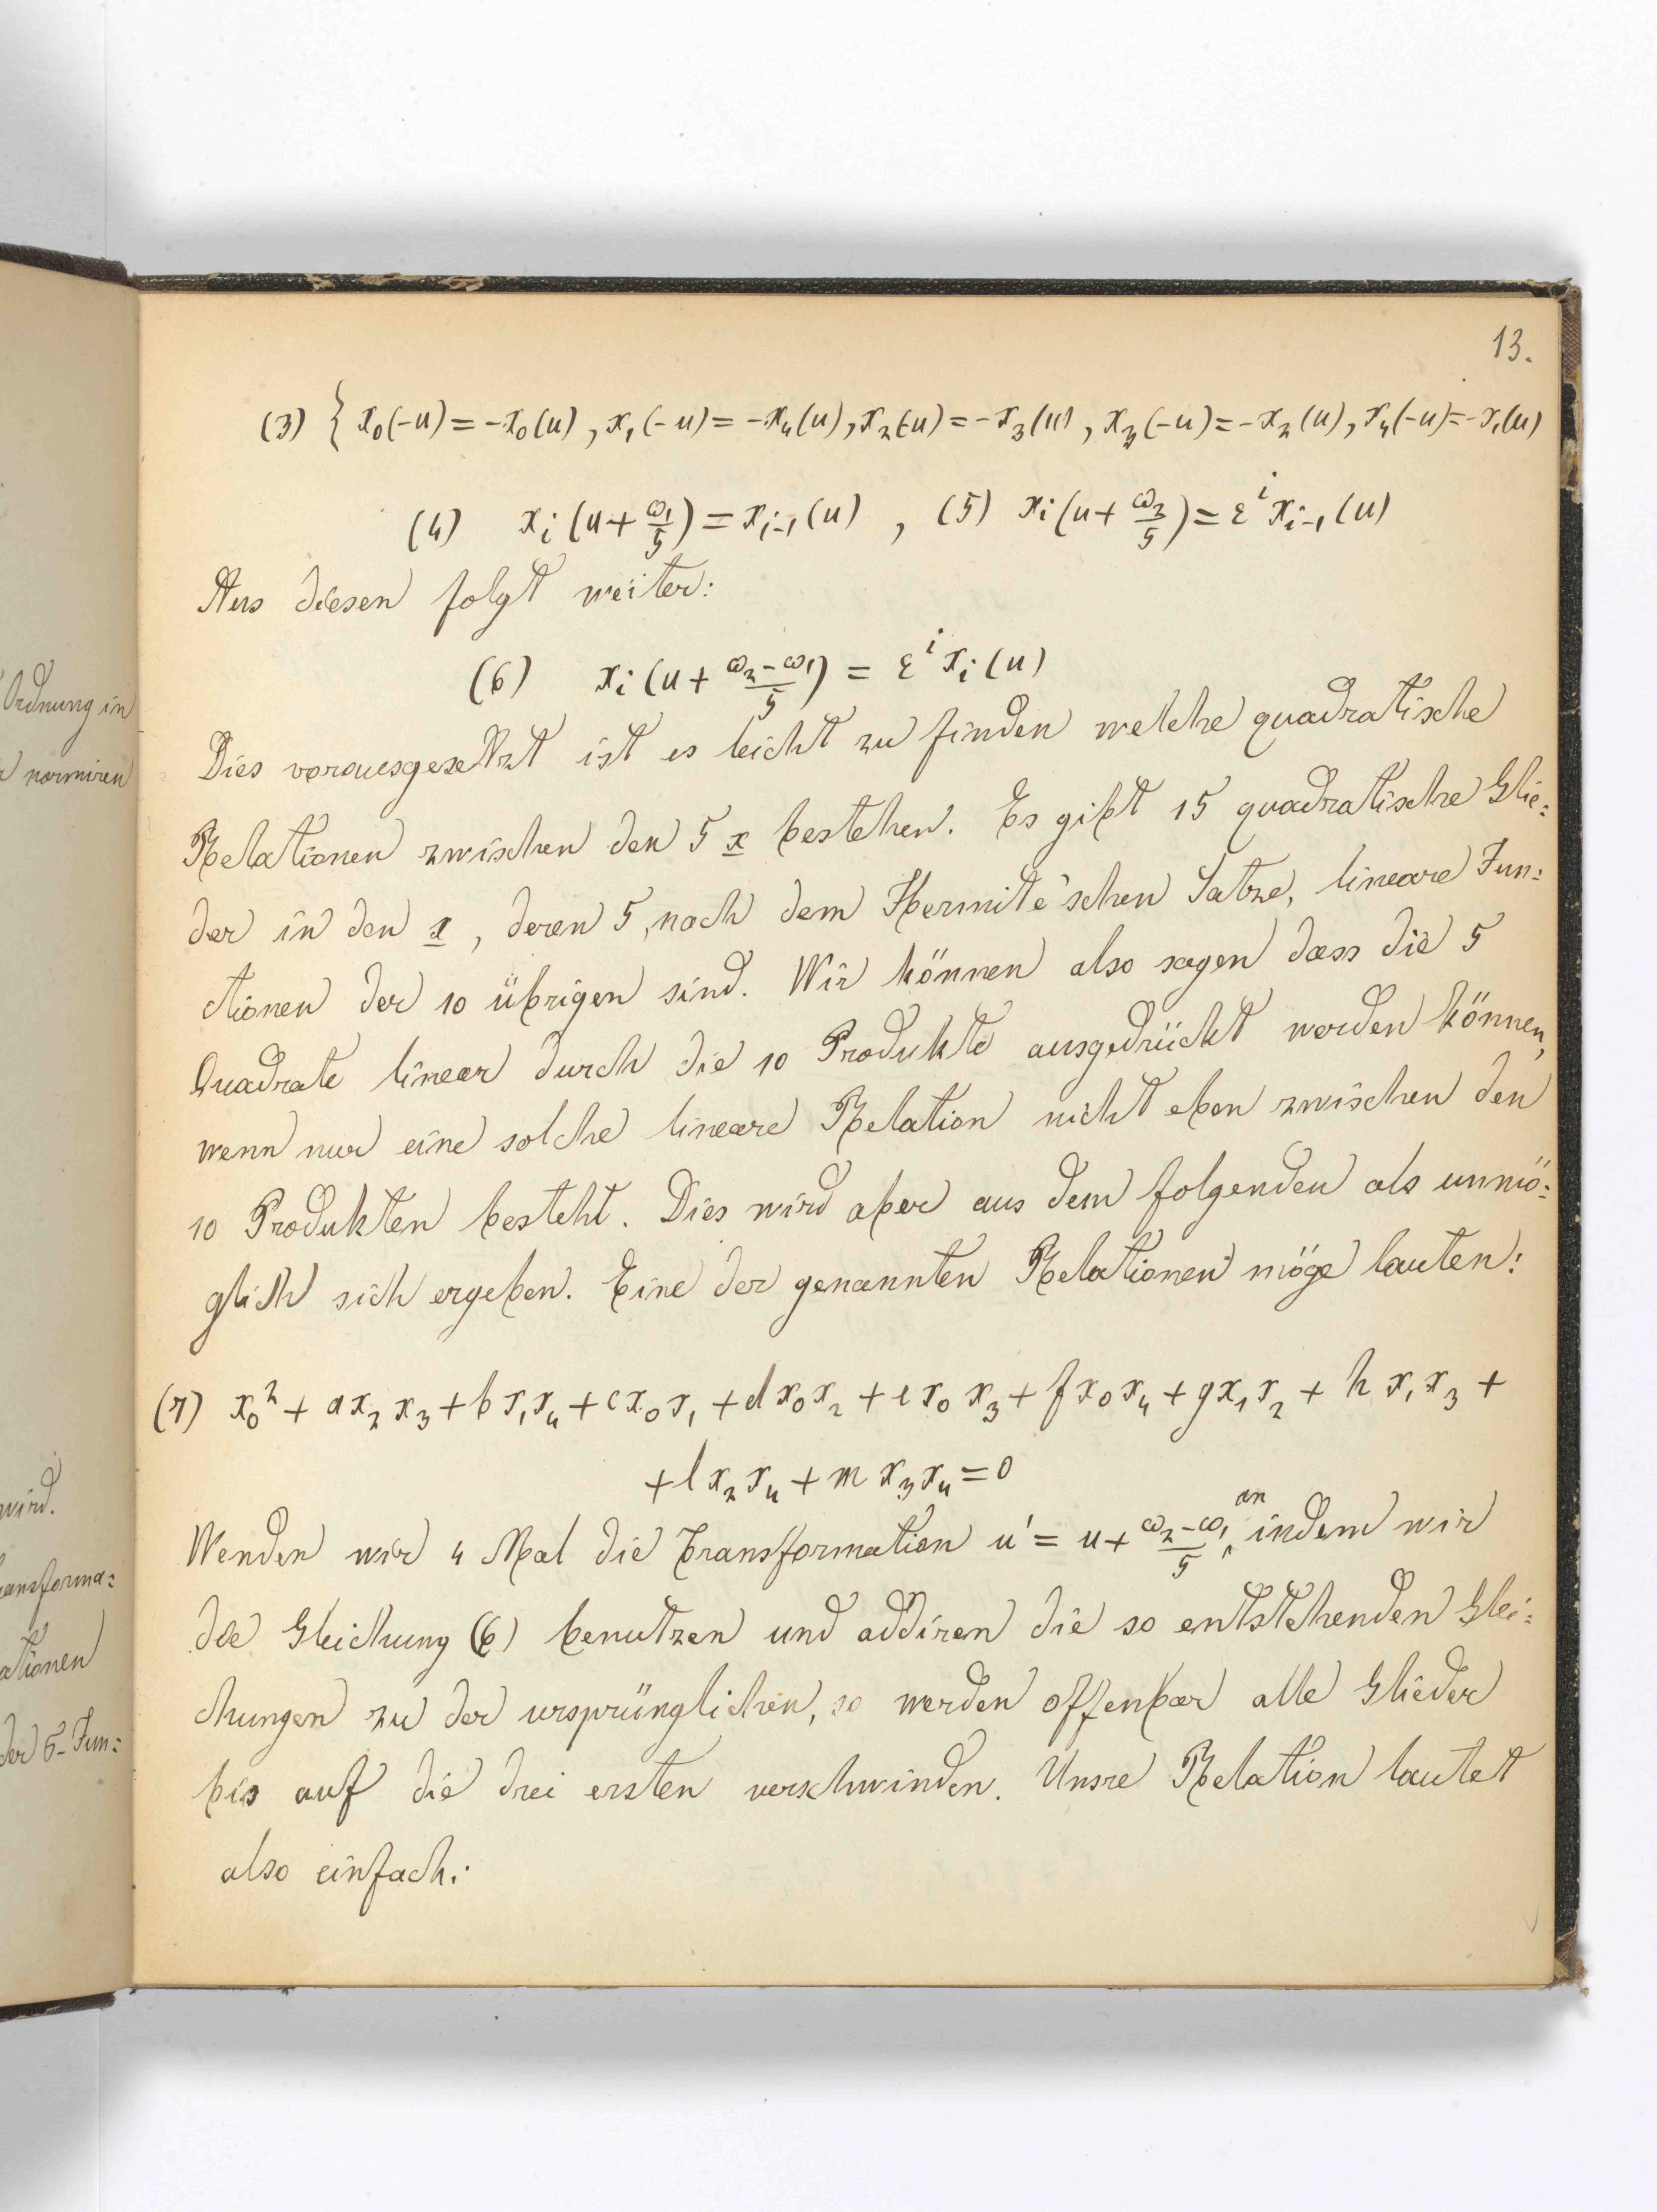 Ordnung in
normiren
wird.
ansforma=
ationen
der σ-Fun=
13.
(3) { x₀(-u) = -x₀(u), x₁(-u) = -x₄(u), x₂(-u) = -x₃(u), x₃(-u) = -x₂(u), x₄(-u) = -x₁(u)
(4) xᵢ(u + ω₁/5) = xᵢ₋₁(u), (5) xᵢ(u + ω₂/5) = εⁱ xᵢ₋₁(u)
Aus diesen folgt weiter:
(6) xᵢ(u + (ω₂-ω₁)/5) = εⁱ xᵢ(u)
Dies vorausgesetzt ist es leicht zu finden welche quadratische
Relationen zwischen den 5 x bestehen. Es gibt 15 quadratische Glie=
der in den x, deren 5, nach dem Hermite'schen Satze, lineare Fun=
ctionen der 10 übrigen sind. Wir können also sagen dass die 5
Quadrate linear durch die 10 Produkte ausgedrückt werden können,
wenn nur eine solche lineare Relation nicht eben zwischen den
10 Produkten besteht. Dies wird aber aus dem folgenden als unmö=
glich sich ergeben. Eine der genannten Relationen möge lauten:
(7) x₀² + ax₂x₃ + bx₁x₄ + cx₀x₁ + dx₀x₂ + ex₀x₃ + fx₀x₄ + gx₁x₂ + hx₁x₃ +
+ lx₂x₄ + mx₃x₄ = 0
Wenden wir 4 Mal die Transformation u' = u + (ω₂-ω₁)/5 an, indem wir
die Gleichung (6) benutzen und addiren die so entstehenden Glei=
chungen zu der ursprünglichen, so werden offenbar alle Glieder
bis auf die drei ersten verschwinden. Unsre Relation lautet
also einfach: